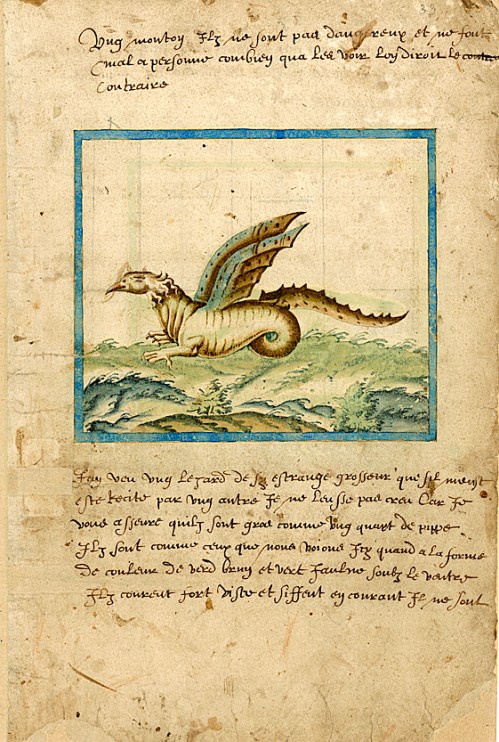 Ung mouton Ilz ne sont pas dangereux et ne font
mal a personne combien qua les voir Lon diroit le
Contraire
Jay veu ung Lezard de sy estrange grosseur que sil meust
este Recite par ung autre Je ne leusse pas creu Car Je
vous asseure quilz sont gros comme ung quart de pippe
Ilz sont comme ceux que nous voions Icy quand a la forme
de couleur de verd brun et vert Jaulne soubz le ventre
Ilz courent fort viste et siffent en courant Il ne sont